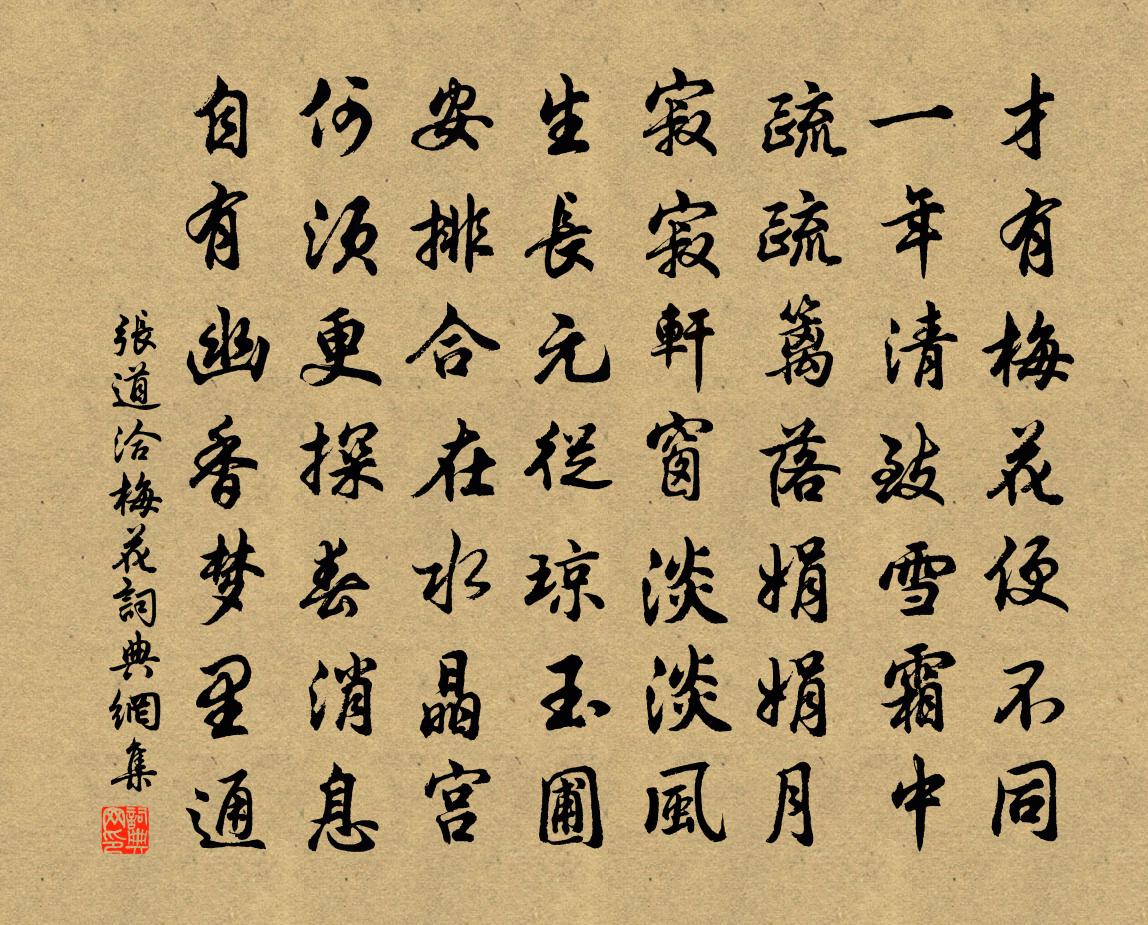 才有梅花便不同
一年清致雪霜中
疏疏篱落娟娟月
寂寂軒窗淡淡風
生長元從琼玉圃
安排合在水晶宫
何須更探春消息
自有幽香梦里通
張道洽梅花詞典網集
詞典网印